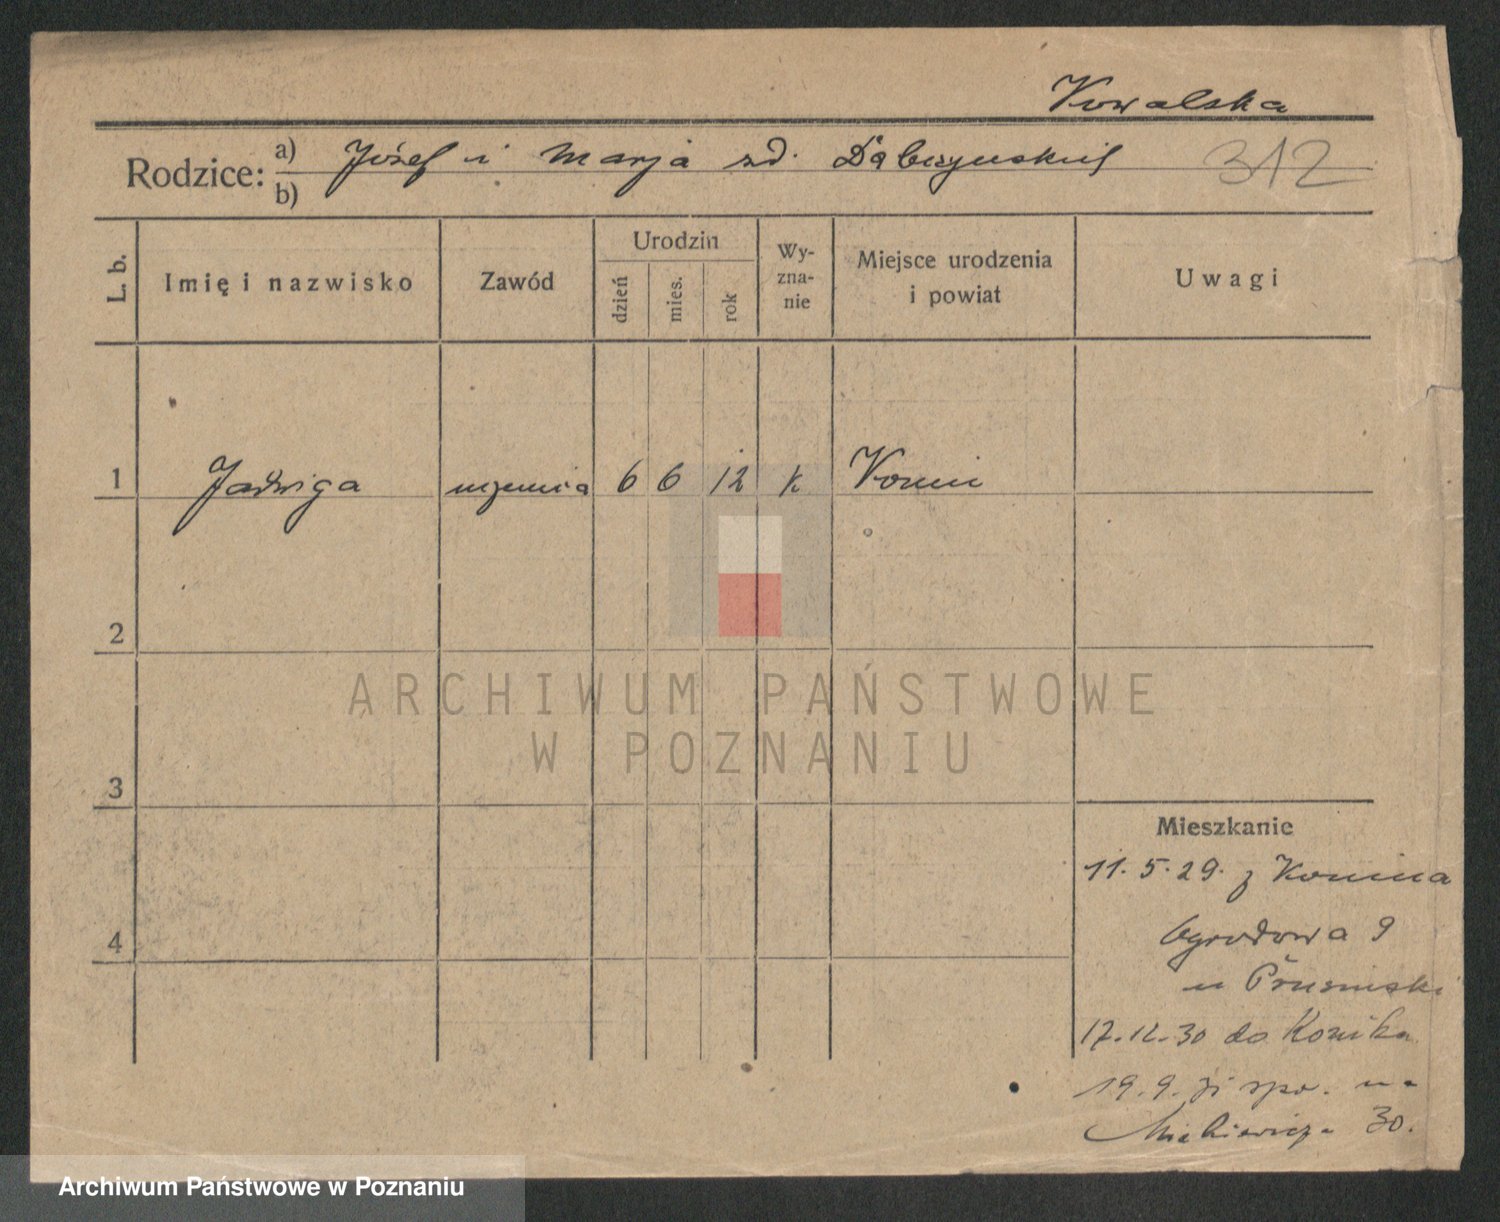 Kowalska
Rodzice: a) Józef i Marja zd. Dąbczyńskich 312
b)
L. b. Imię i nazwisko Zawód Urodzin dzień mies. rok Wyznanie Miejsce urodzenia i powiat Uwagi
1 Jadwiga uczennica 6 6 12 k Konin
2
ARCHIWUM PAŃSTWOWE
W POZNANIU
3
Mieszkanie
11.5.29. z Konina
4
Ogrodowa 9
u
17.12.30 do
19.9.31 na
Mickiewicza 30.
Archiwum Państwowe w Poznaniu